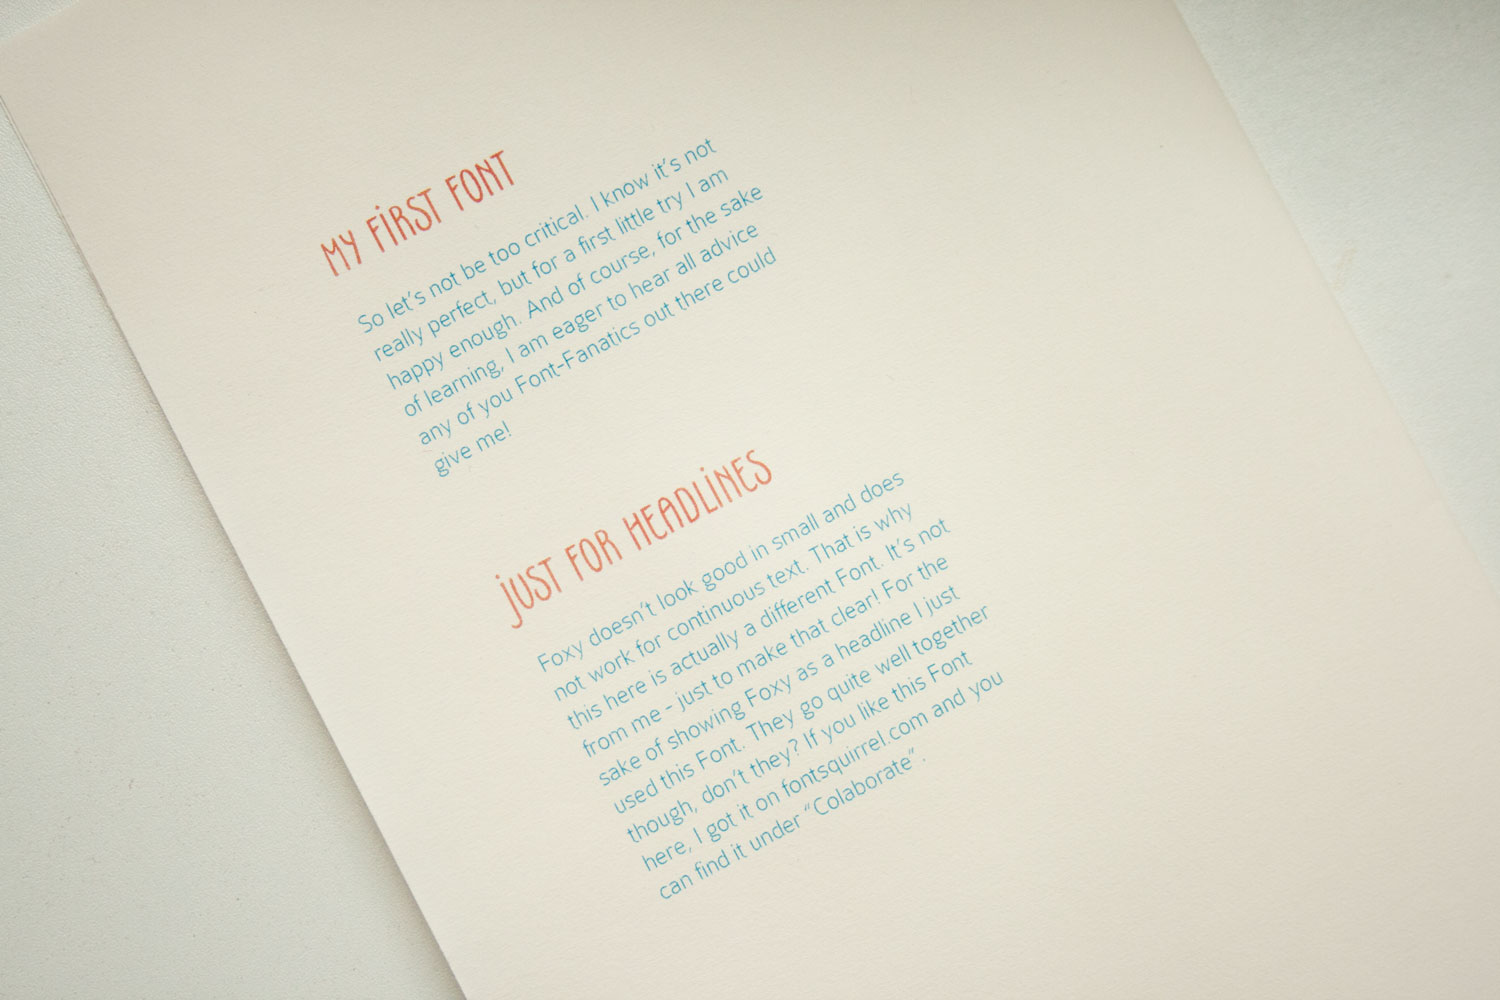 MY FiRST FONT
So let's not be too critical. I know it's not
really perfect, but for a first little try I am
happy enough. And of course, for the sake
of learning, I am eager to hear all advice
any of you Font-Fanatics out there could
give me!
jUST FOR HEADLiNES
Foxy doesn't look good in small and does
not work for continuous text. That is why
this here is actually a different Font. It's not
from me - just to make that clear! For the
sake of showing Foxy as a headline I just
used this Font. They go quite well together
though, don't they? If you like this Font
here, I got it on fontsquirrel.com and you
can find it under "Colaborate" .